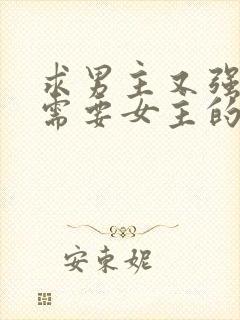 求男主又强
需要女主的
安东妮